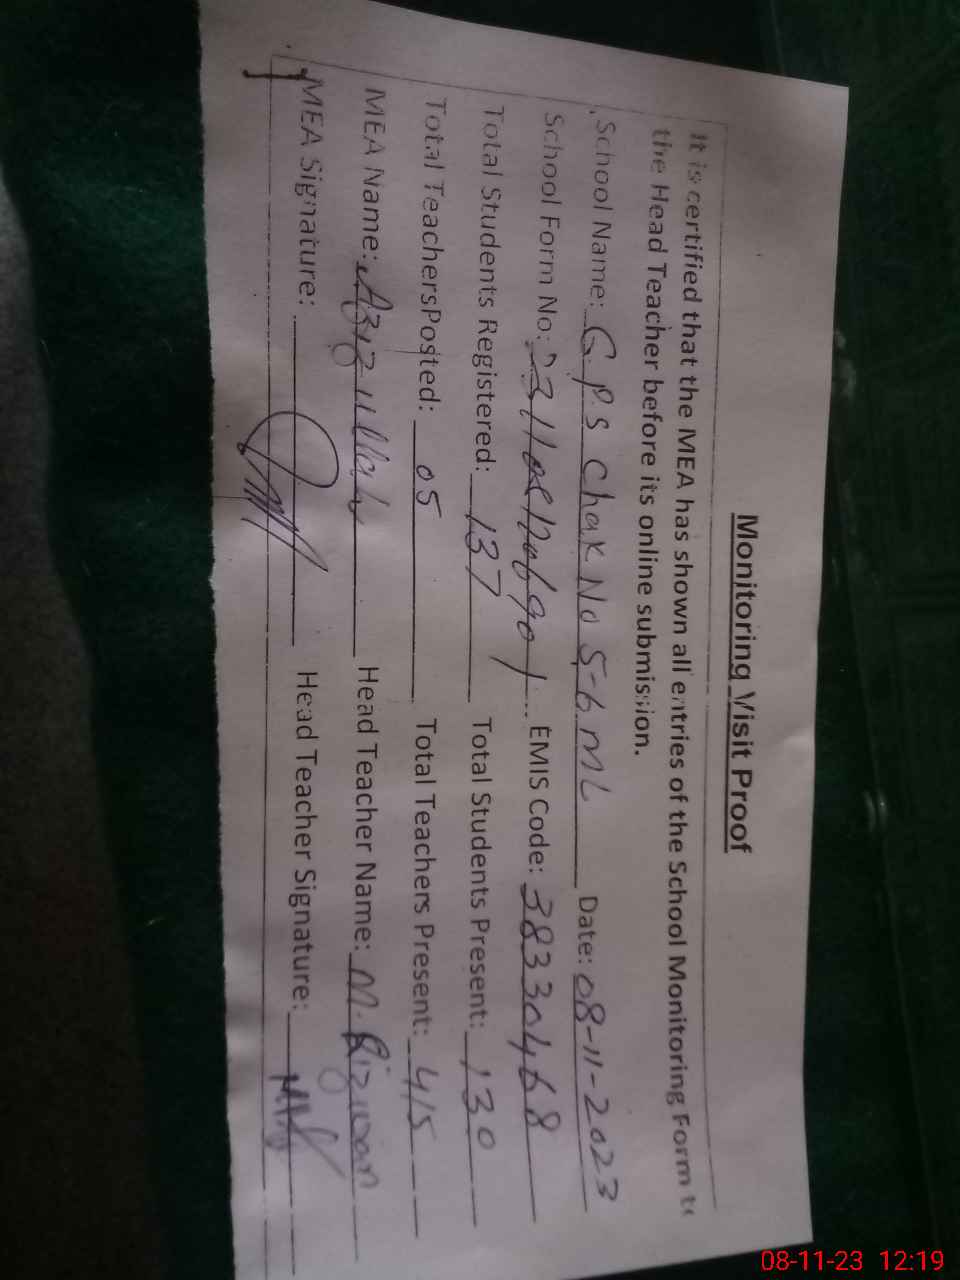 Monitoring Visit Proof
It is certified that the MEA has shown all entries of the School Monitoring Form to
the Head Teacher before its online submission.
School Name: G.P.S Chak No 5-6.ML Date: 08-11-2023
School Form No: EMIS Code: 38330468
Total Students Registered: 137 Total Students Present: 130
Total TeachersPosted: 05 Total Teachers Present: 4/5
MEA Name: Azizullah Head Teacher Name: M. Rizwan
MEA Signature: Head Teacher Signature:
08-11-23 12:19